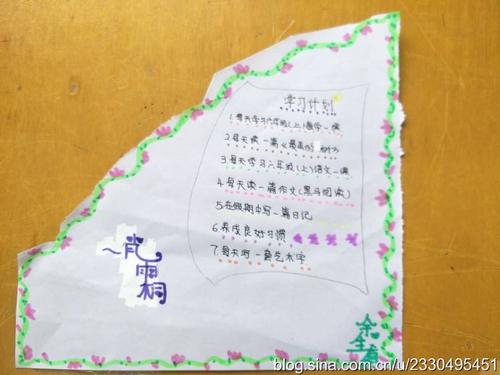 学习计划
1.每天学习六年级(上)数学一课
2.每天读一篇
3.每天学习六年级(上)语文一课
4.每天读一篇作文(黑马阅读)
5.在假期中写一篇日记
6.养成良好习惯
7.每天写一套艺术字
肖雨桐
blog.sina.com.cn/u/2330495451